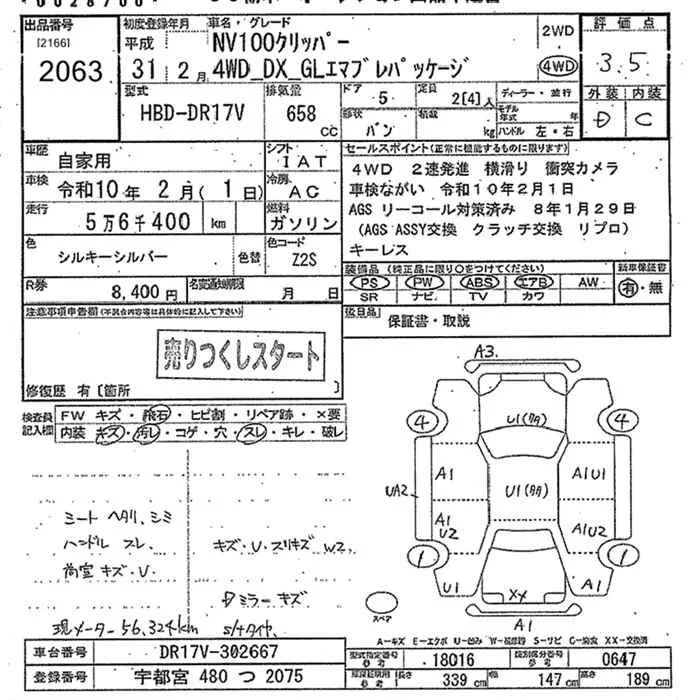 出品番号
[2166]
2063
初度登録年月
平成
31 2月
車名・グレード
NV100クリッパー
4WD_DX_GLエマブレパッケージ
2WD
4WD
評価点
3.5
外装 内装
D C
型式
HBD-DR17V
排気量
658 cc
ドア
5
定員
2[4]人
形状
バン
積載
kg
ディーラー・並行
モデル年式 年
ハンドル 左・右
車歴
自家用
シフト
IAT
車検 令和10年 2月(1日)
冷房
AC
走行
5万6千400 km
燃料
ガソリン
色
シルキーシルバー
色替
色コード
Z2S
R券
8,400円
名変通知期限
月 日
セールスポイント(正常に機能するものに限ります)
4WD 2速発進 横滑り 衝突カメラ
車検ながい 令和10年2月1日
AGS リーコール対策済み 8年1月29日
(AGS ASSY交換 クラッチ交換 リプロ)
キーレス
装備品(純正品に限り○をつけてください)
PS PW ABS エアB AW
SR ナビ TV カワ
新車保証書
有・無
後日品
保証書・取説
注意事項申告欄(不具合内容等は具体的に記入して下さい)
売りつくしスタート
修復歴 有[箇所 ]
検査員記入欄
FW キズ・飛石・ヒビ割・リペア跡・×要
内装 キズ・汚レ・コゲ・穴・スレ・キレ・破レ
シート ヘタリ、シミ
ハンドル スレ.
荷室 キズ・U.
キズ・U・スリキズ W2.
Dミラー キズ
現メーター 56,324km
S/Hタイヤ.
A3.
4
4
U1(多)
A1
U1(多)
A1U1
UA2
A1
U2
A1U2
1
1
U1
XX
A1
スペア
A1
A-キズ E-エクボ U-凹み W-補修跡 S-サビ C-腐食 XX-交換済
車台番号 DR17V-302667
登録番号 宇都宮 480 つ 2075
型式指定番号 参考 18016
類別区分番号 参考 0647
長さ 339cm
幅 147cm
高さ 189cm